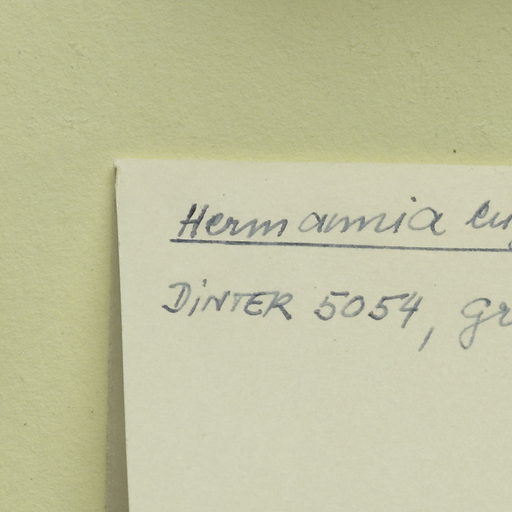 Hermannia
DINTER 5054,